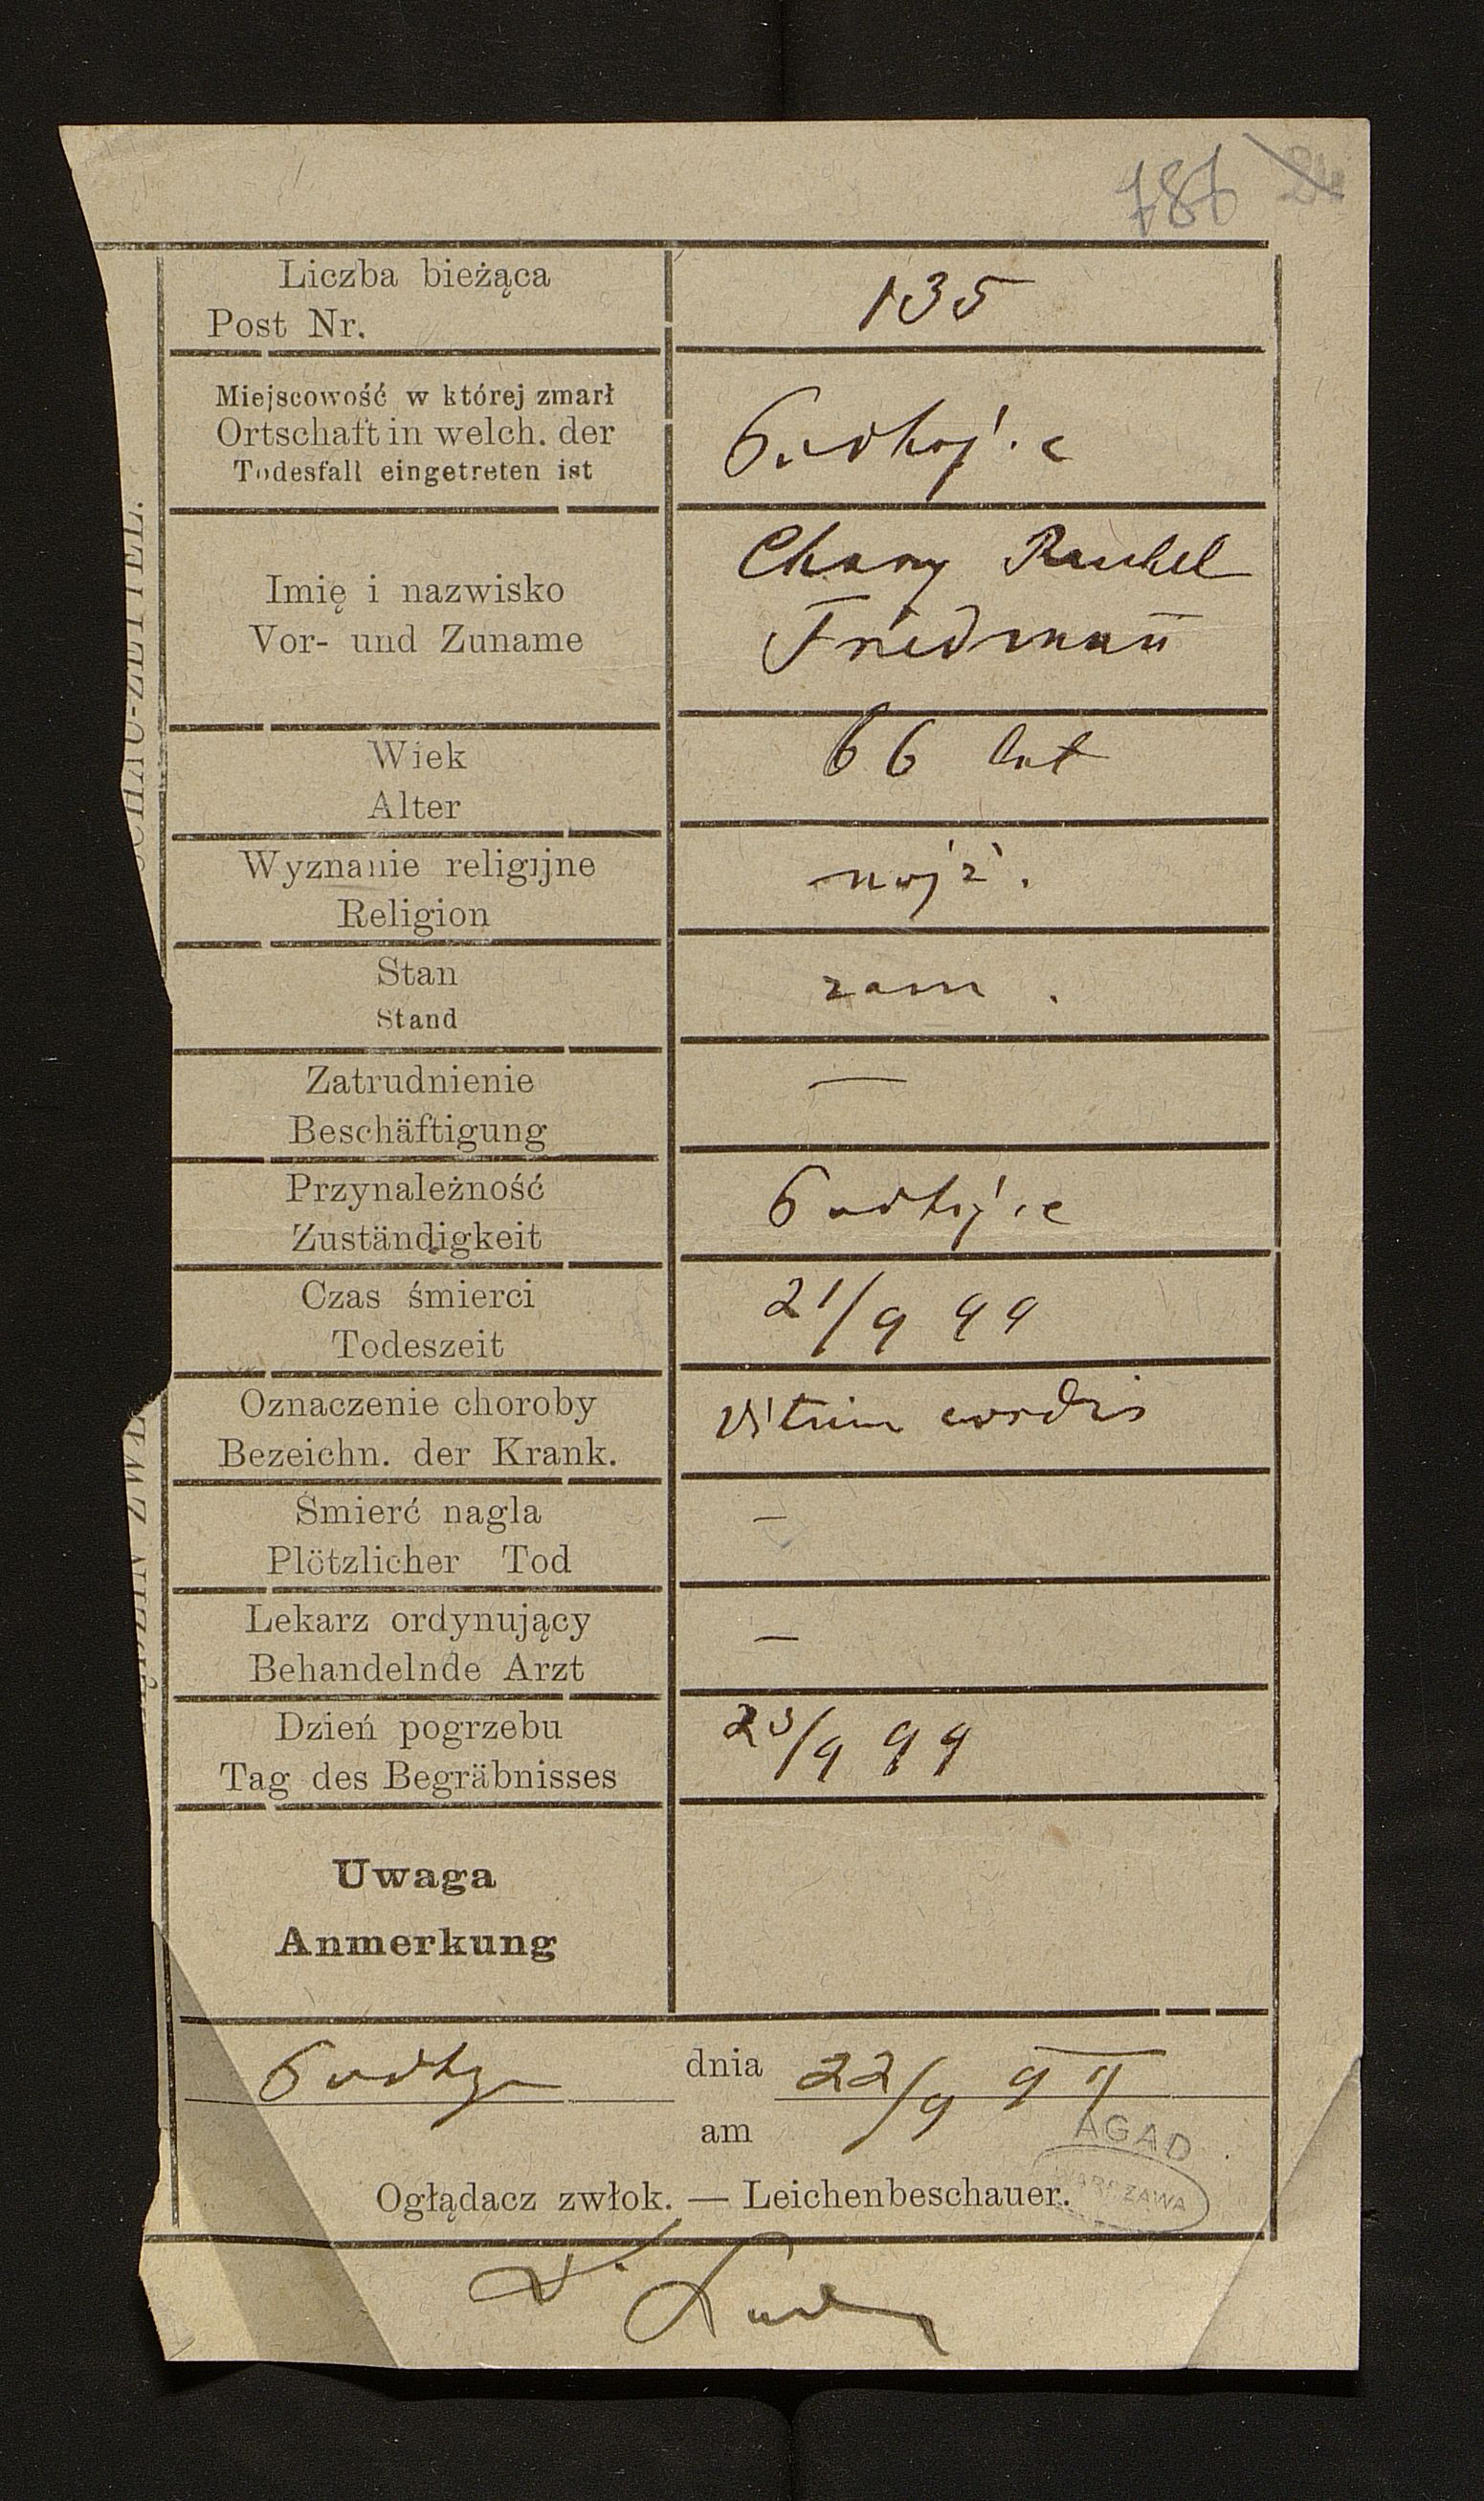 786 24
Liczba bieżąca
Post Nr.
135
Miejscowość w której zmarł
Ortschaft in welch. der
Todesfall eingetreten ist
Podhajce
Imię i nazwisko
Vor- und Zuname
Chany Ruchel
Friedmann
Wiek
Alter
66 lat
Wyznanie religijne
Religion
mojż.
Stan
Stand
zam.
Zatrudnienie
Beschäftigung
—
Przynależność
Zuständigkeit
Podhajce
Czas śmierci
Todeszeit
21/9 99
Oznaczenie choroby
Bezeichn. der Krank.
Vitium cordis
Śmierć nagla
Plötzlicher Tod
—
Lekarz ordynujący
Behandelnde Arzt
—
Dzień pogrzebu
Tag des Begräbnisses
23/9 99
Uwaga
Anmerkung
dnia 22/9 99
am
AGAD
WARSZAWA
Ogłądacz zwłok. — Leichenbeschauer.
Dr
SCHAU-ZETTEL.
ZIN ZWŁ